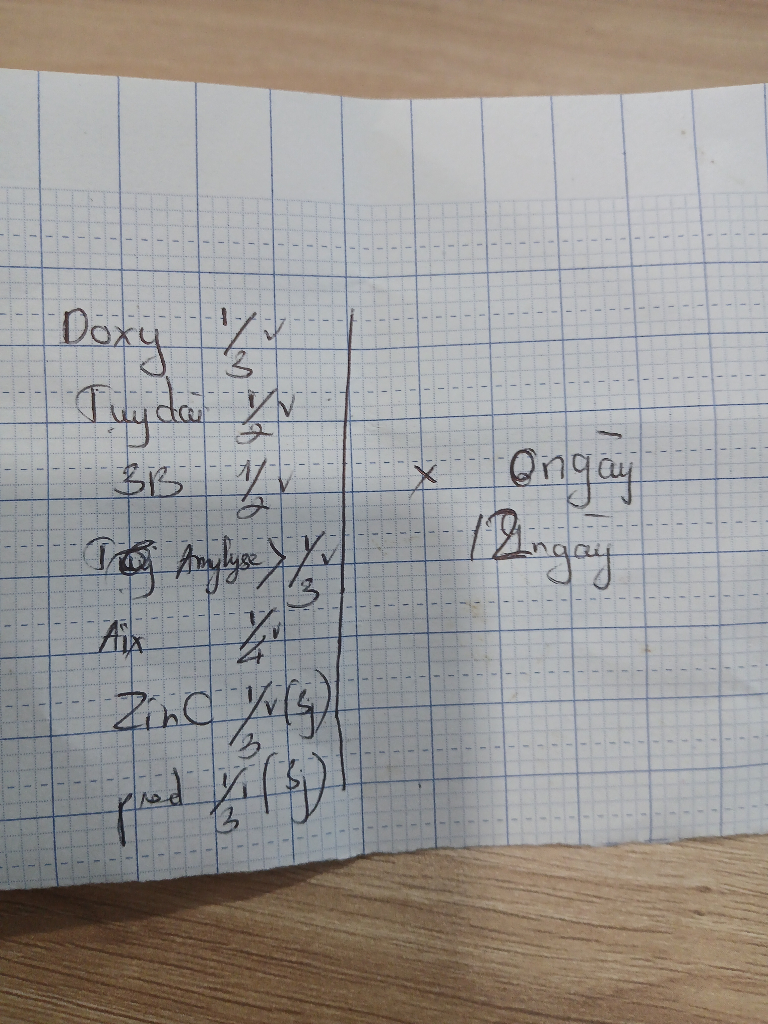 Doxy 1/3 v
Tụy dài 1/2 v
3B 1/2 v
Amylyse > 1/3 v
Aix 1/4 v
ZinC 1/3 v (S)
pred 1/3 (S)
x
ngày
12 ngày